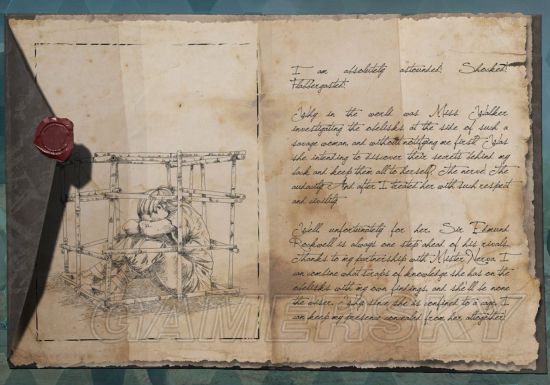 I am absolutely astounded! Shocked!
Flabbergasted!
Why in the world was Miss Walker
investigating the obelisks at the side of such a
savage woman, and without notifying me first? Was
she intending to discover their secrets behind my
back and keep them all to herself? The nerve! The
audacity! And after I treated her with such respect
and civility.
Well unfortunately for her, Sir Edmund
Rockwell is always one step ahead of his rivals.
Thanks to my partnership with Mister Nerva, I
can combine what scraps of knowledge she has on the
obelisks with my own findings, and she'll be none
the wiser. Why, since she is confined to a cage, I
can keep my presence concealed from her altogether.
GAMERSKY